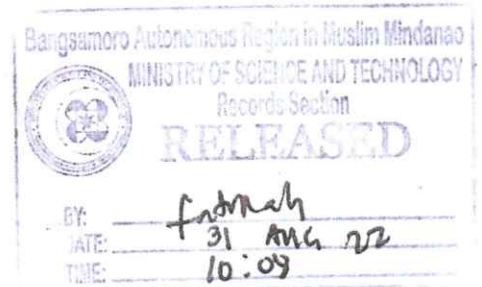 Bangsamoro Autonomous Region in Muslim Mindanao
MINISTRY OF SCIENCE AND TECHNOLOGY
Records Section
RELEASED
BY:
DATE: 31 AUG 22
TIME: 10:09